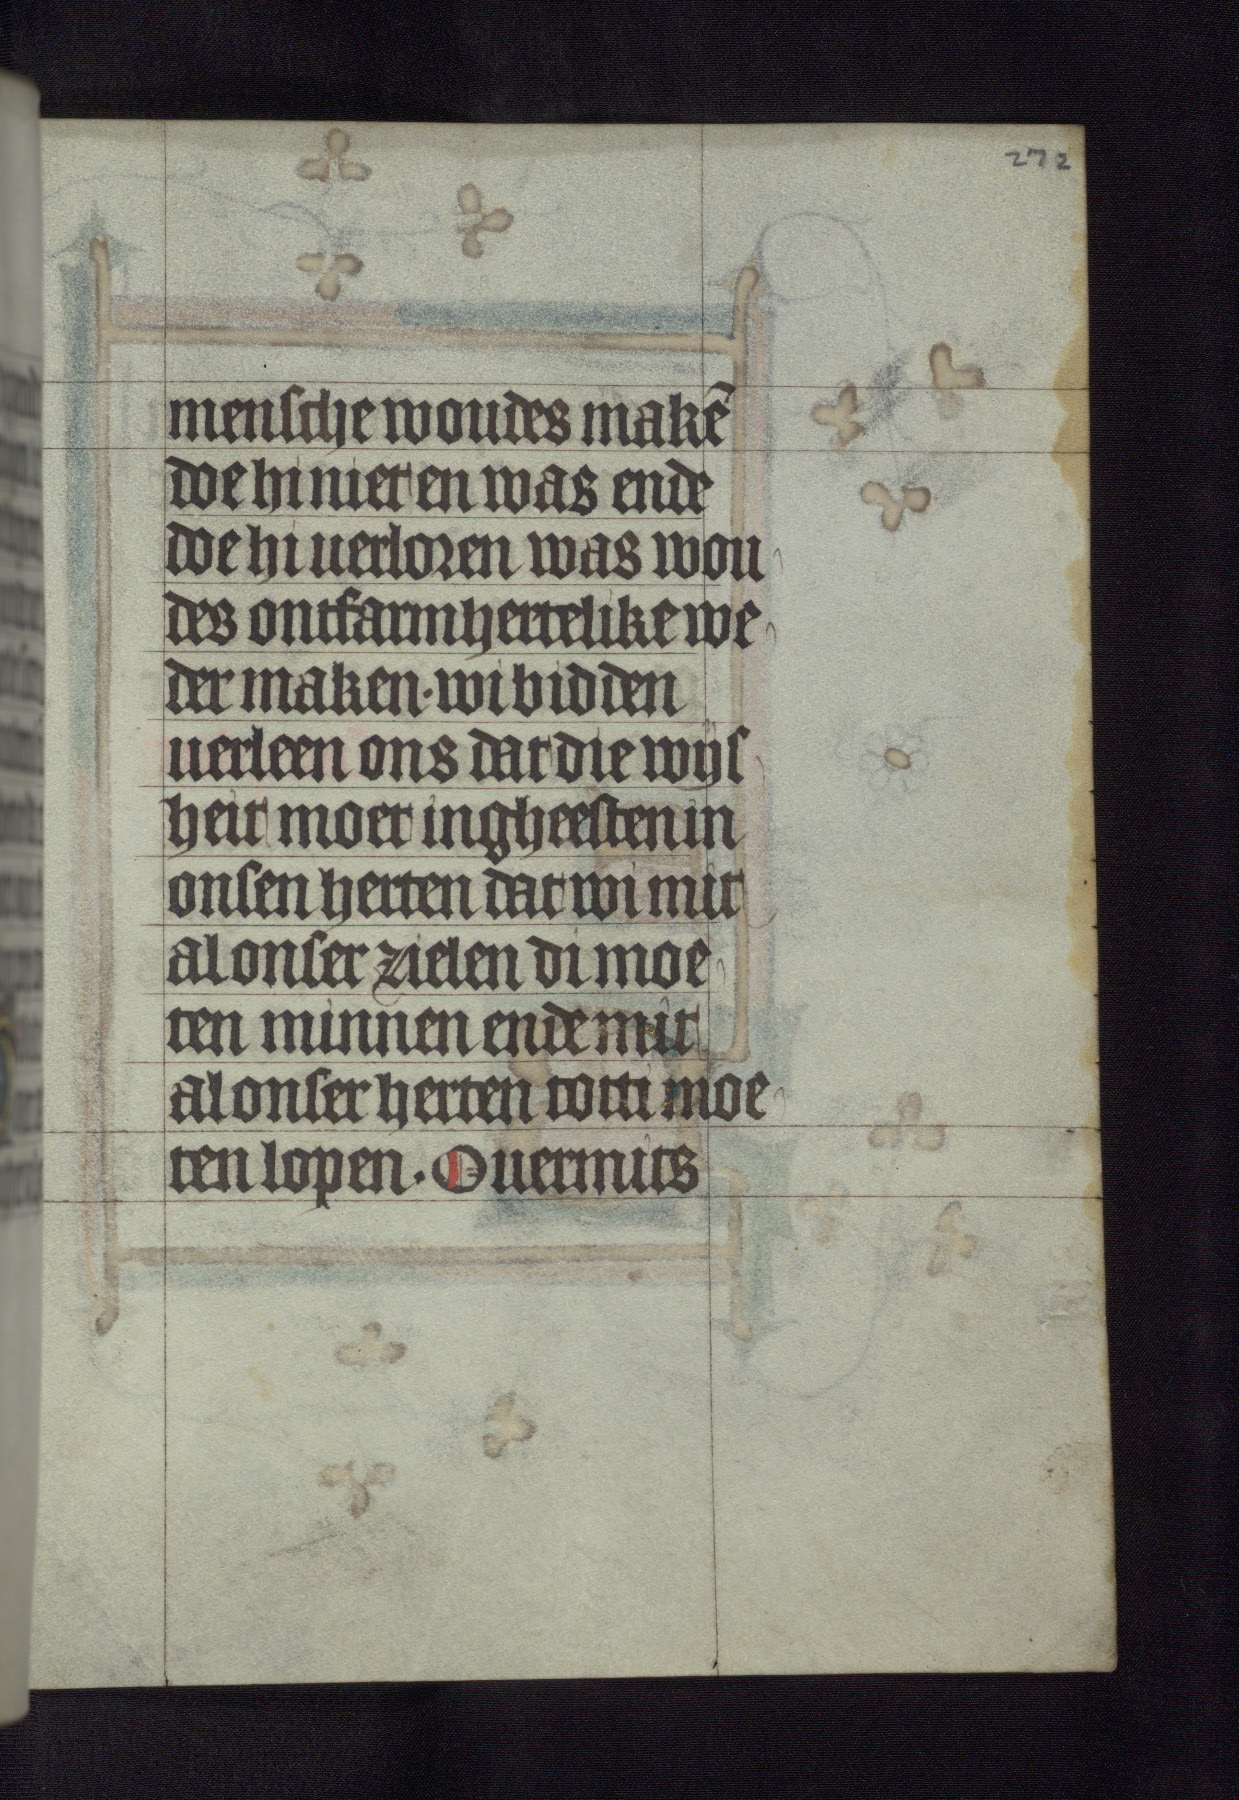 272
mensche woudes makē
doe hi niet en was ende
doe hi uerloren was wou
des ontfarmhertelike we
der maken·wi bidden
uerleen ons dat die wijs
heit moet ingheesten in
onsen herten dat wi mit
al onser zielen di moe
ten minnen ende mit
al onser herten totti moe
ten lopen. Ouermits